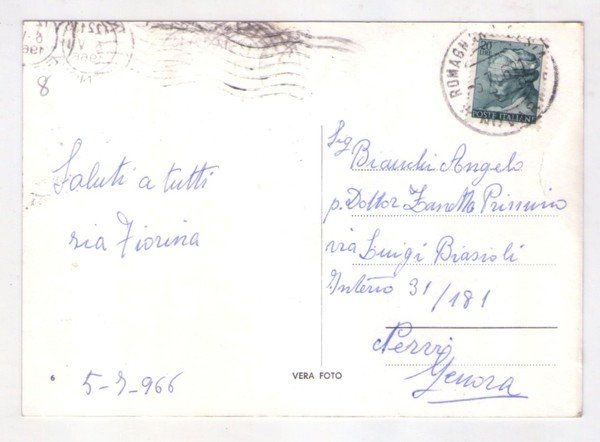 8
Saluti a tutti
zia Fiorina
5-7-966
6
VERA FOTO
20
POSTE ITALIANE
ROMAGN
Sig
Bianchi Angelo
p. Dottor Zanotto Primino
via Luigi Biasioli
Interio 31/181
Nervi
Genova